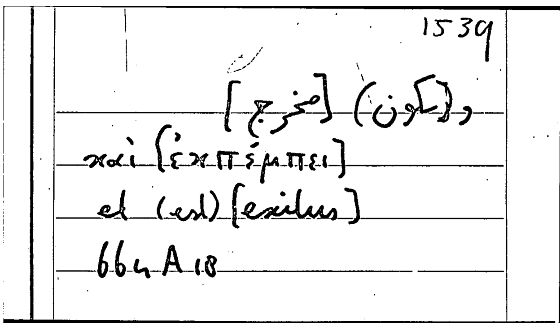 1539
و(يكون) [مخرج]
καὶ [ἐκπέμπει]
et (est) [exitus]
664 A 18